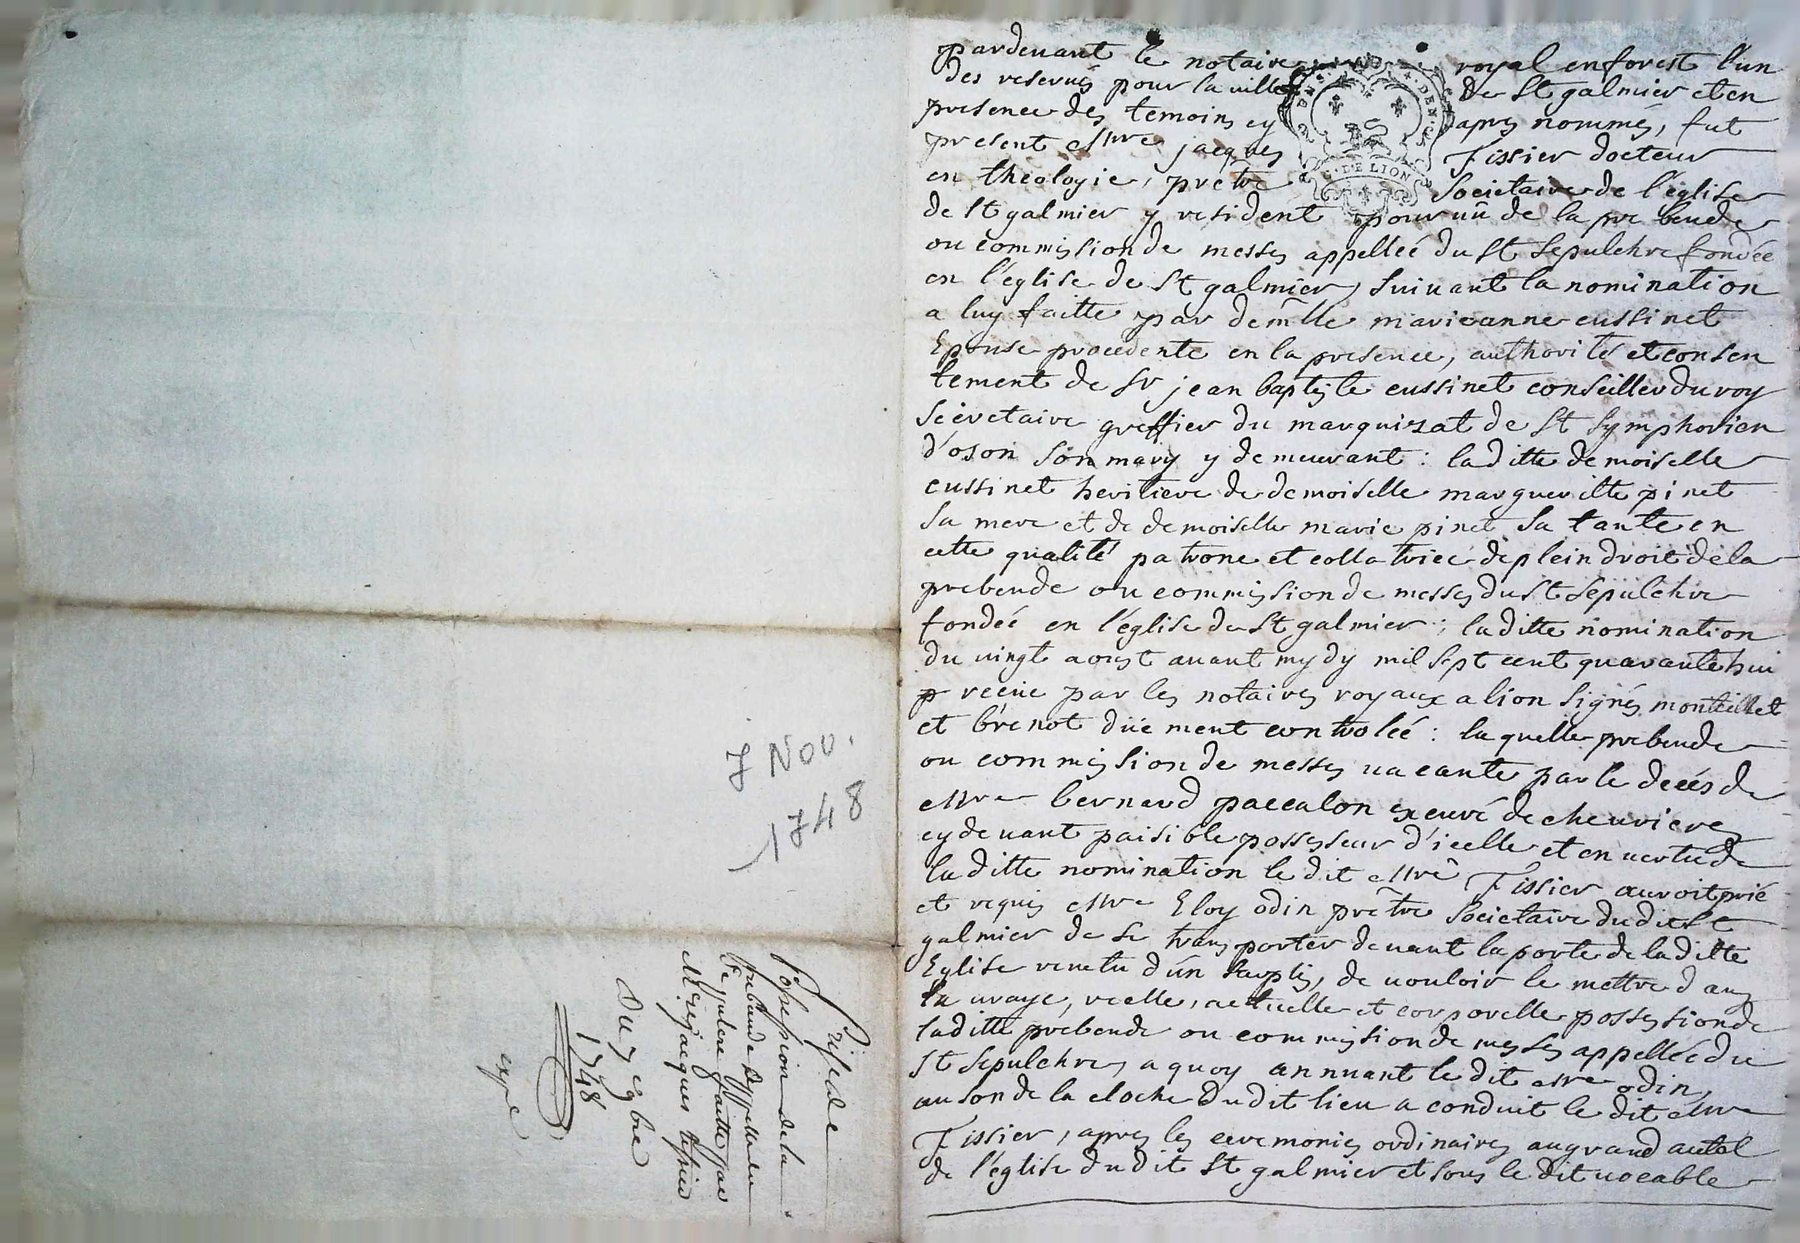 7 Nov.
1748
Prise de
possession de la
prebande appellée du
St sepulcre faitte par
Mre jacques tissier
Du 7 9bre
1748
expé
pardevant le notaire royal en forest l'un
des reservés pour la ville de St galmier et en
presence des temoins cy apres nommés, fut
present Mre jacques Tissier docteur
en theologie, prêtre Societaire de l'église
de St galmier y resident pourvû de la prebende
ou commission de messes appelleé du St sepulchre fondée
en l'église de St galmier, suivant la nomination
a luy faitte par demlle marieanne cussinet
Epouse procedente en la presence, authorité et consen
tement de sr jean baptiste cussinet conseiller du roy
Sécretaire greffier du marquizat de St Symphorien
d'oson son mary y demeurant : laditte demoiselle
cussinet heritiere de demoiselle margueritte pinet
sa mere et de demoiselle marie pinet sa tante en
cette qualité patrone et collatrice de plein droit de la
prebende ou commission de messes du St Sepulchre
fondeé en l'église de St galmier ; laditte nomination
du vingt aoust avant mydy mil sept cent quarante hui
reçeüe par les notaires royaux a lion signés montellet
et brenot düement controleé : laquelle prebende
ou commission de messes vacante par le decés de
Mre bernard paccalon ex curé de chevrieres
cy devant paisible possesseur d'icelle et en vertu de
laditte nomination le dit Mre Tissier auroit prié
et requis Mre Eloy odin prêtre Societaire dudit St
galmier de se transporter devant la porte de laditte
Eglise revetu d'un surplis, de vouloir le mettre dans
la vraye, reelle, actuelle et corporelle possession de
laditte prebende ou commission de messes appellée du
St Sepulchre, a quoy annuant le dit Mre odin,
au son de la cloche dudit lieu a conduit le dit Mre
Tissier, apres les ceremonies ordinaires au grand autel
de l'église dudit St galmier et sous le dit vocable
DE LION